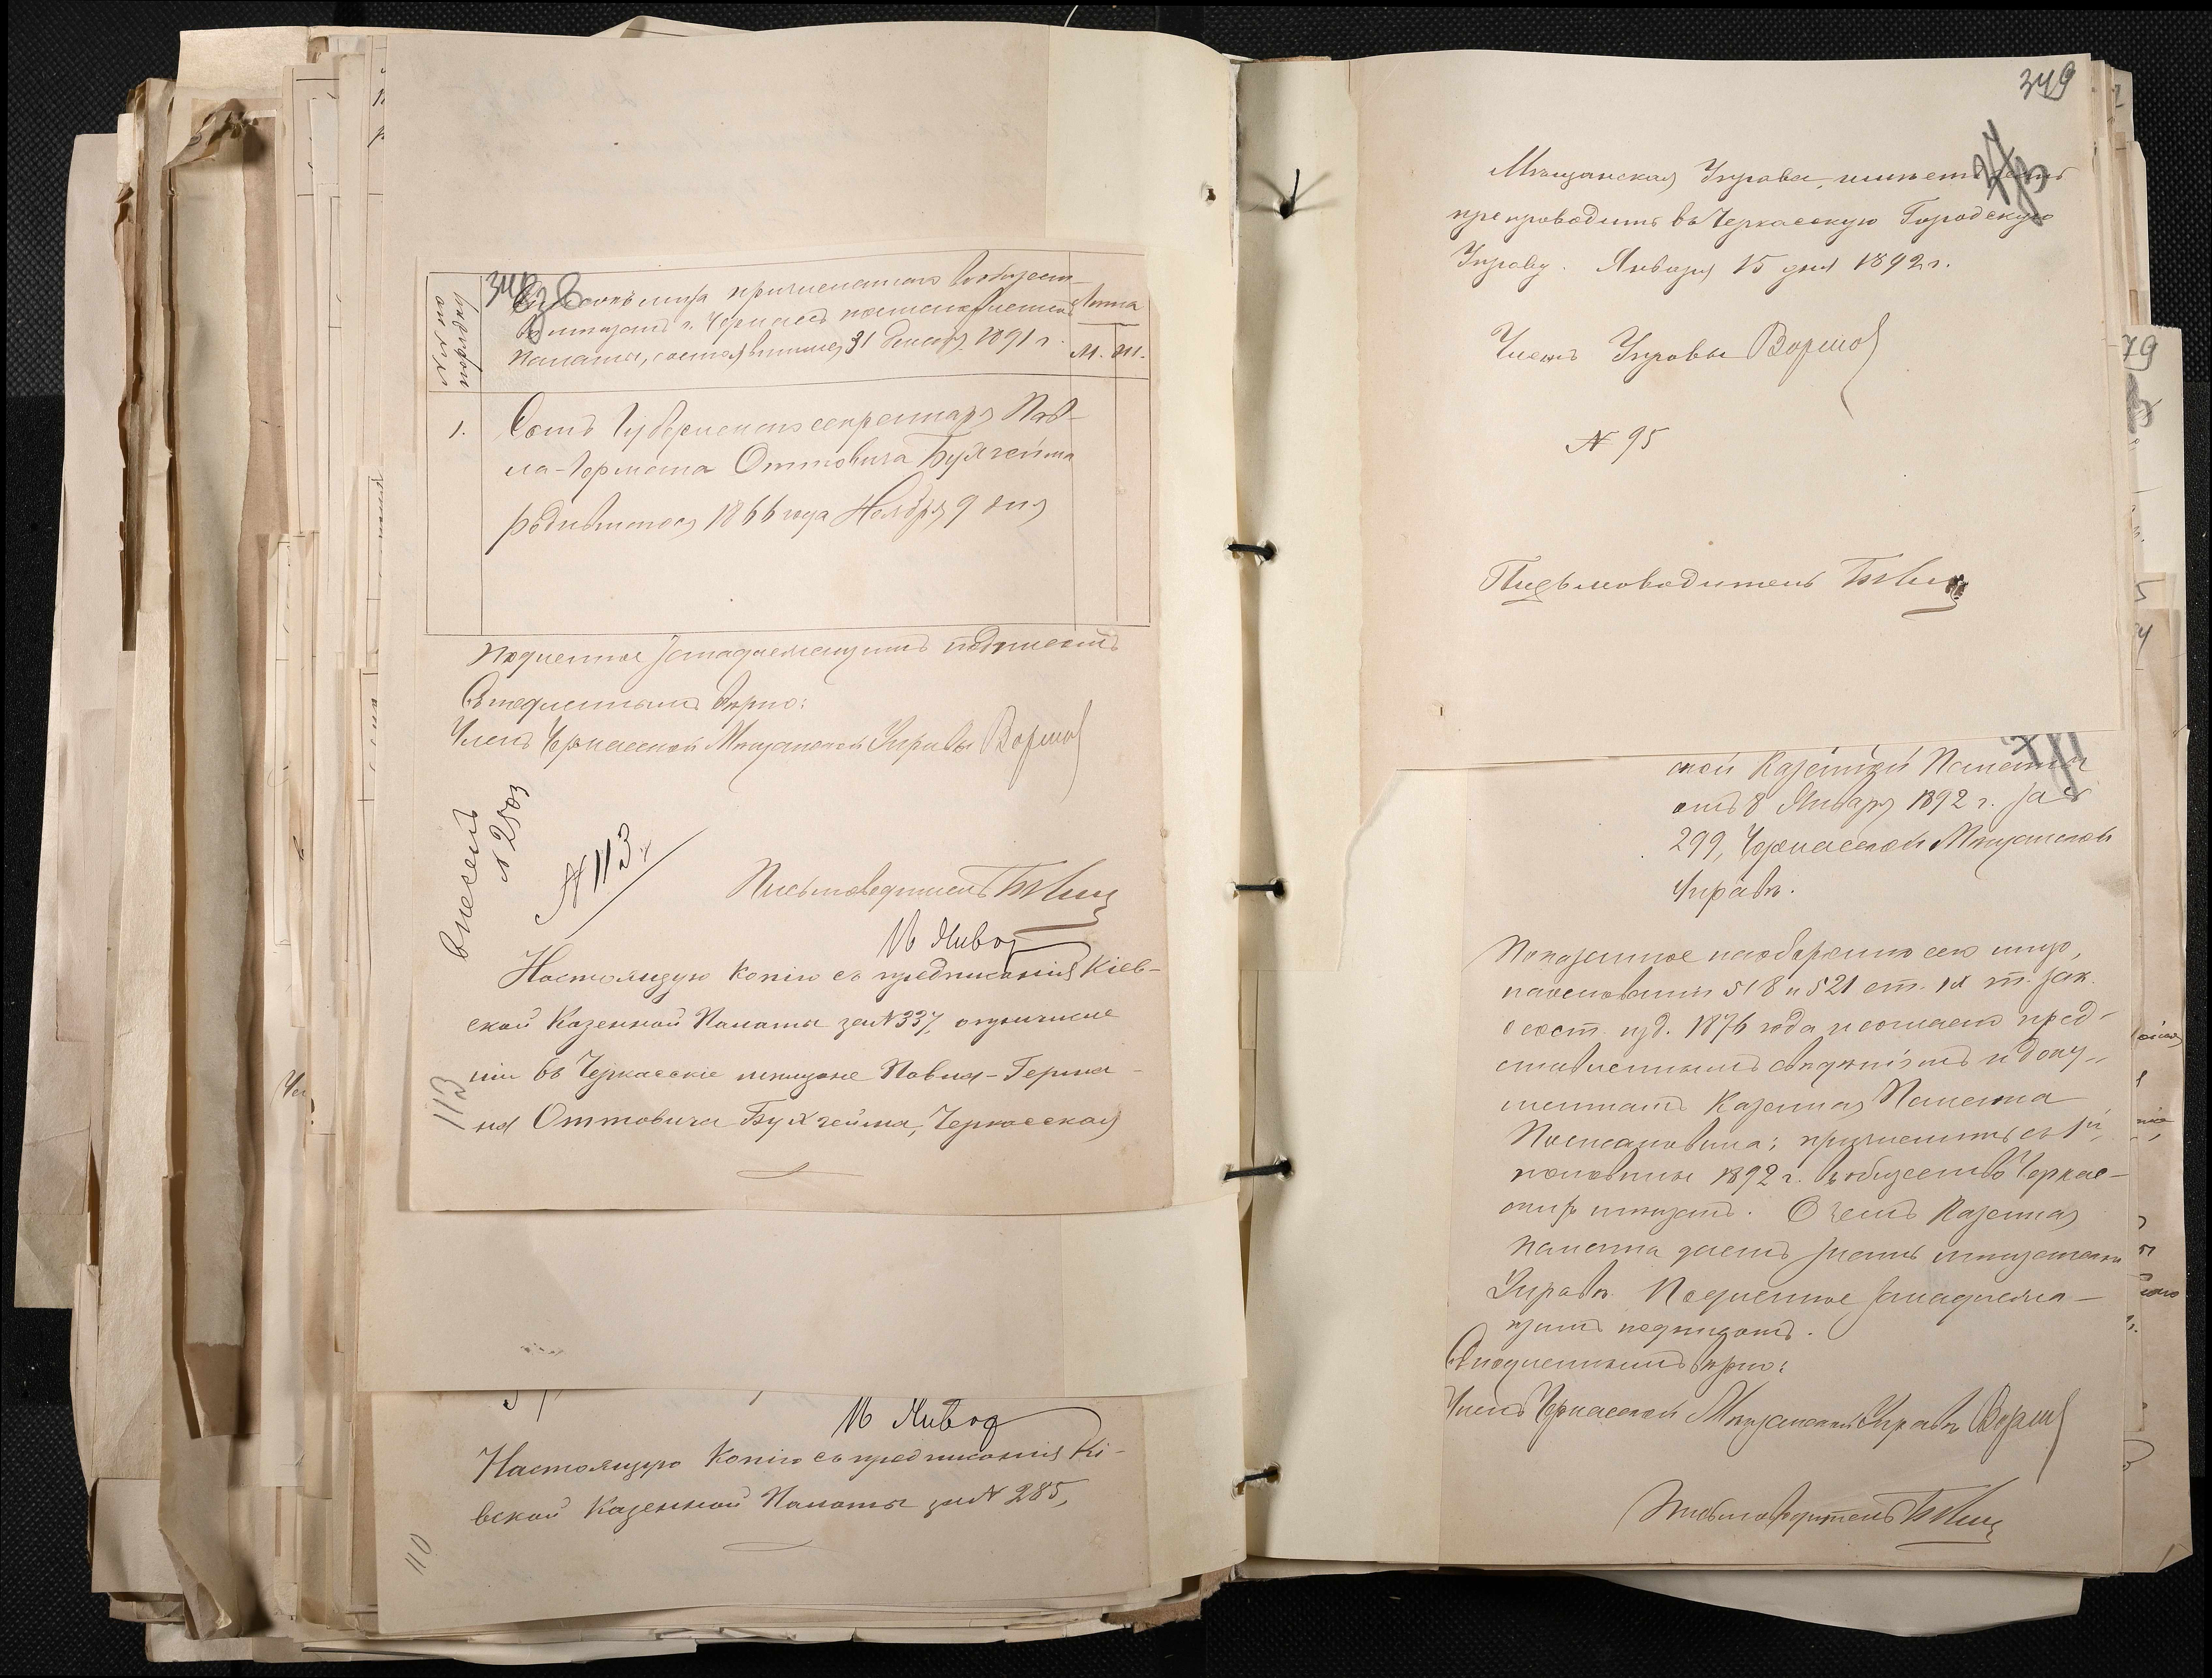 №№ по порядку
Списокъ лица причисленнаго въ общест-
во мещанъ г. Черкассъ постановленіемъ
Палаты, состоявшимся 31 Декабр. 1891 г.
Лѣта
М. Ж.
1.
Сынъ Губернскаго секретаря Пав-
ла-Германа Оттовича Бухгейма
родившагося 1866 года Ноября 9 дня
Подлинное за надлежащимъ подписомъ
Съ подлиннымъ вѣрно:
Членъ Черкасской Мѣщанской Управы
внесенъ
№ 2503
№ 113
Письмоводитель
16 Январ
Настоящую копію съ предписанія Кіев-
ской Казенной Палаты за № 337, о причисле
ніи въ Черкасскіе мещане Павла-Герма-
на Оттовича Бухгейма, Черкасская
113
16 Январ
Настоящую копію съ предписанія Кі-
евской Казенной Палаты за № 285,
110
349
Мѣщанская Управа, имѣетъ честь
препроводить въ Черкасскую Городскую
Управу. Января 15 дня 1892 г.
Членъ Управы
№ 95
Письмоводитель
ской Казенной Палаты
отъ 8 Января 1892 г. за №
299, Черкасской Мѣщанской
Управѣ.
Показанное на оборотѣ сего лицо,
на основаніи 518 и 521 ст. IX т. Зак.
о сост. изд. 1876 года и согласно пред-
ставленнымъ свѣдѣніямъ и доку-
ментамъ Казенная Палата
Постановила: причислить съ 1й
половины 1892 г. въ общество Черкас-
скихъ мещанъ. О чемъ Казенная
Палата даетъ знать мещанской
Управѣ. Подлинное за надлежа-
щимъ подписомъ.
Съ подлиннымъ вѣрно:
Членъ Черкасской Мѣщанской Управы
Письмоводитель
79